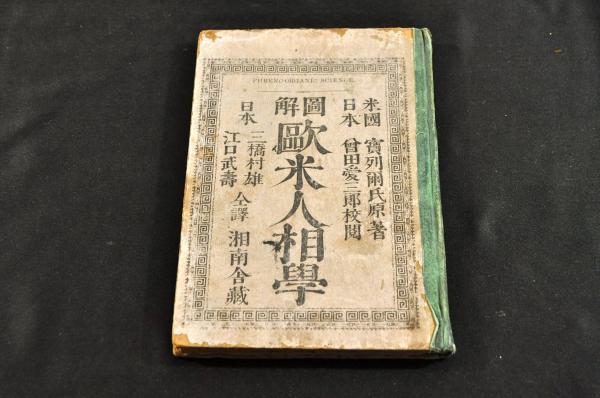 PHRENOORGANIC SCIENCE.
米國 寳列爾氏原著
日本 曾田愛三郎校閲
圖解
歐米人相學
日本 三橋村雄
江口武壽
仝譯 湘南舍藏